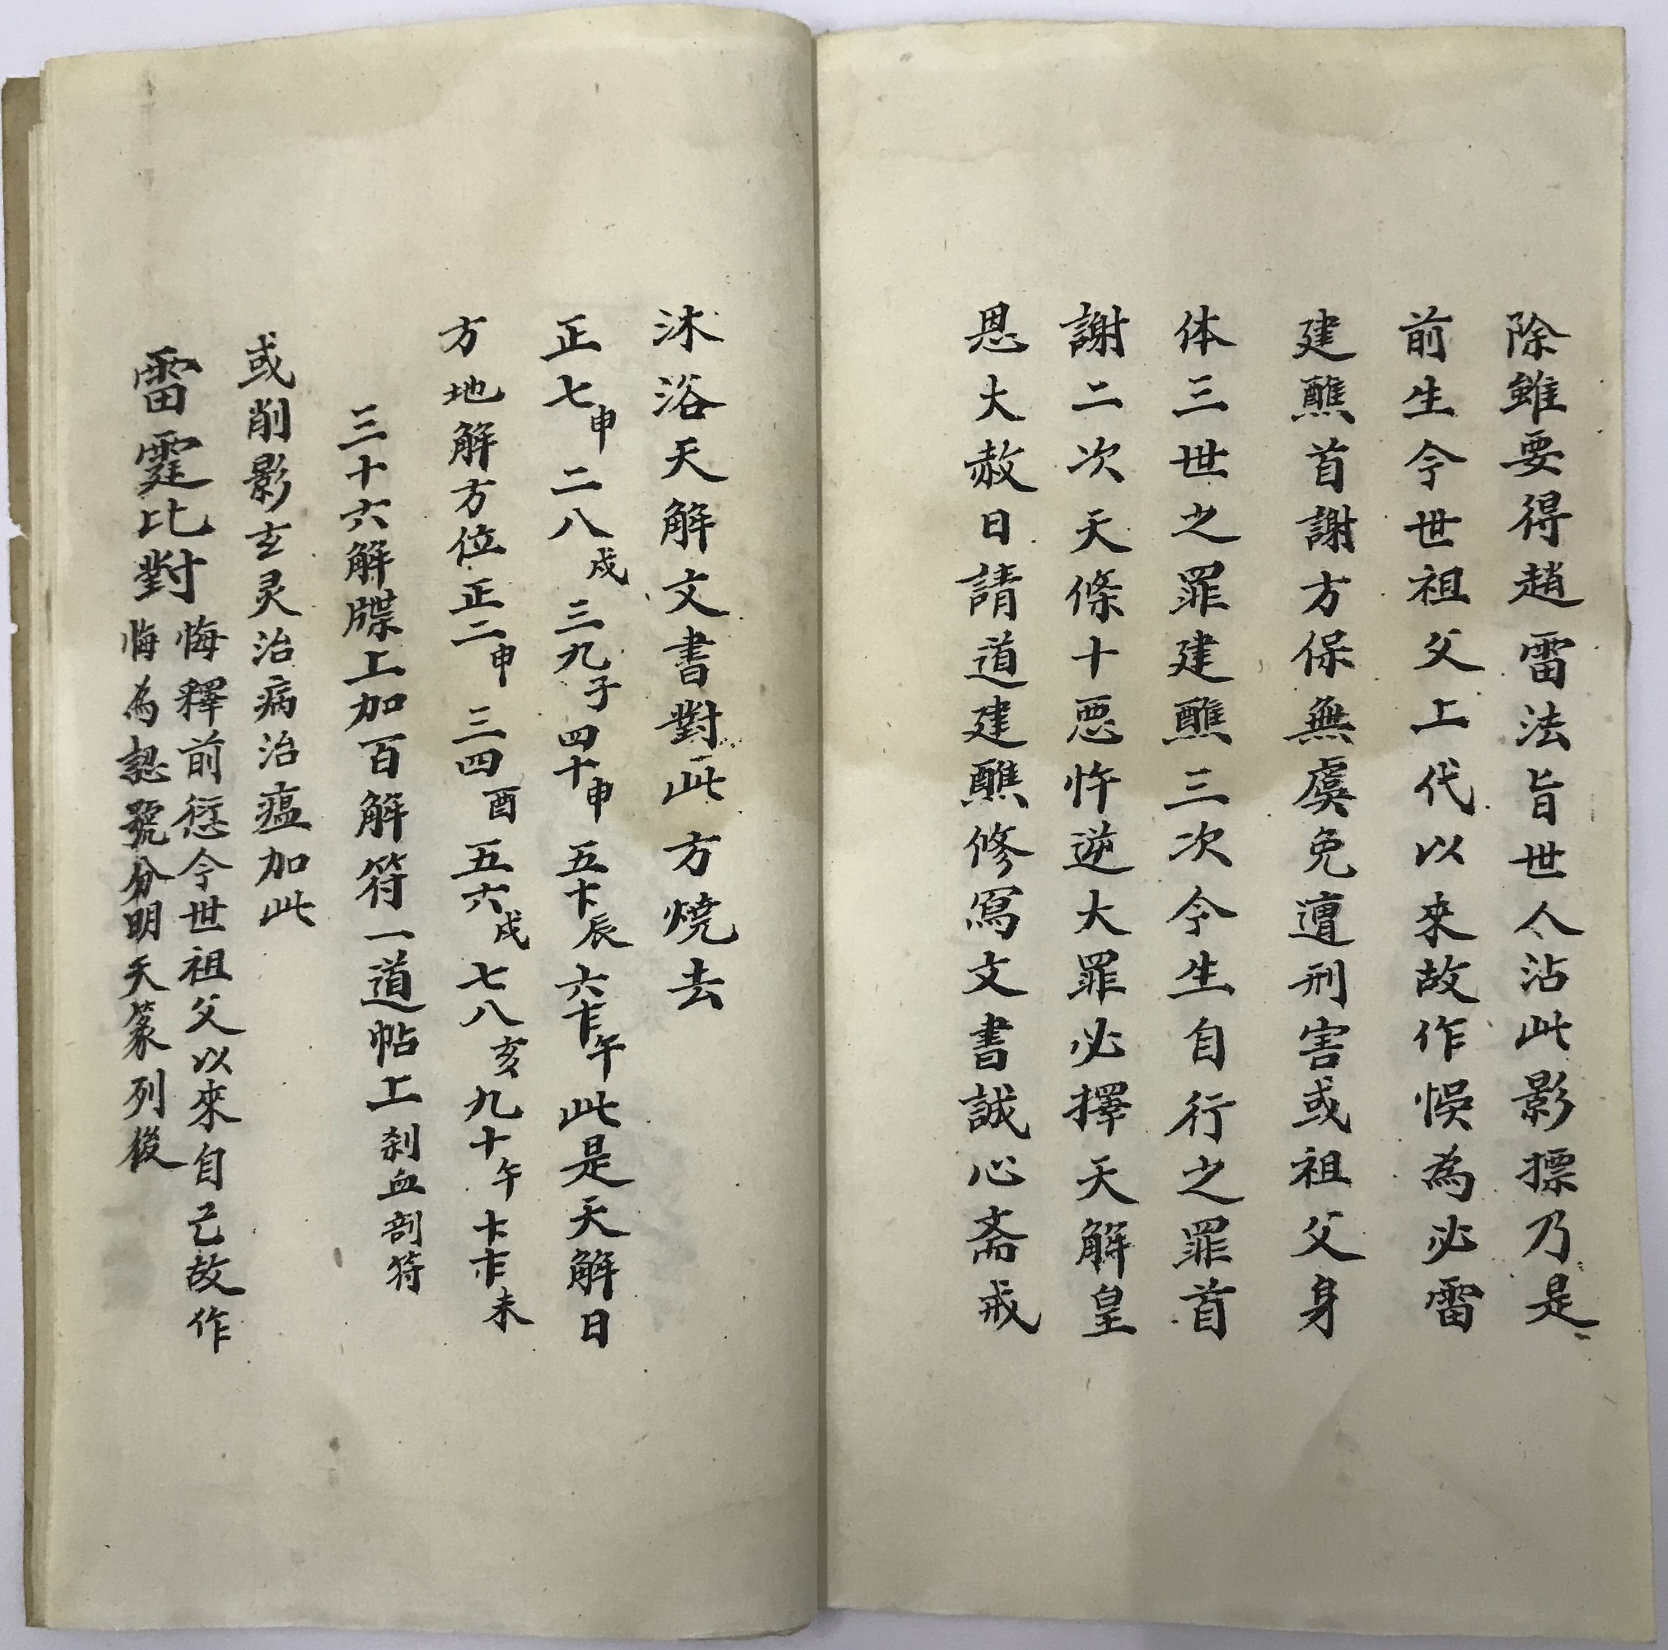 除雖要得趙雷法旨世人沾此影摽乃是
前生今世祖父上代以來故作悮為必雷
建醮首謝方保無虞免遭刑害或祖父身
体三世之罪建醮三次今生自行之罪首
謝二次天條十惡忤逆大罪必擇天解皇
恩大赦日請道建醮修寫文書誠心斋戒
沐浴天解文書對此方燒去
正七申二八戍三九子四十申五卞辰六𠦑午此是天解日
方地解方位正二申三四酉五六戍七八亥九十午卞𠦑未
三十六解牒上加百解符一道帖上刹血剖符
或削影玄灵治病治瘟加此
雷霆比對悔釋前愆今世祖父以來自己故作
悔為認號分明天篆列後